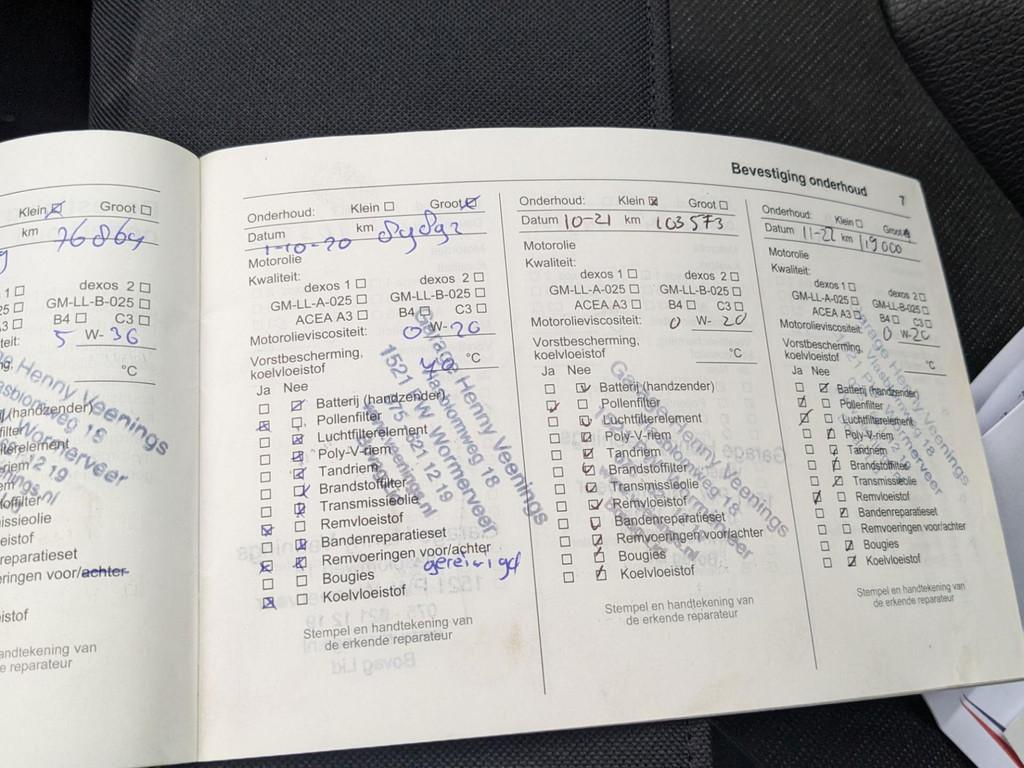 Bevestiging onderhoud 7
Klein Groot
km 76864
1
dexos 2
B4 C3
5 W-36
°C
Henny Veenings
(handzender)
filter
lterelement
19
riem
offilter
issieolie
reparatieset
ringen voor/achter
istof
andtekening van
e reparateur
Onderhoud: Klein Groot
Datum 1-10-20 km 89892
Motorolie
Kwaliteit:
dexos 1 dexos 2
GM-LL-A-025 GM-LL-B-025
ACEA A3 B4 C3
Motorolieviscositeit: 0 W-20
Vorstbescherming,
koelvloeistof 40 °C
Ja Nee
Batterij (handzender)
Pollenfilter
Luchtfilterelement
Poly-V-riem
Tandriem
Brandstoffilter
Transmissieolie
Remvloeistof
Bandenreparatieset
Remvoeringen voor/achter
gereinigd
Bougies
Koelvloeistof
Garage Henny Veenings
Vlasblomweg 18
1521 PW Wormerveer
075 - 621 12 19
Stempel en handtekening van
de erkende reparateur
Onderhoud: Klein Groot
Datum 10-21 km 103573
Motorolie
Kwaliteit:
dexos 1 dexos 2
GM-LL-A-025 GM-LL-B-025
ACEA A3 B4 C3
Motorolieviscositeit: 0 W-20
Vorstbescherming,
koelvloeistof °C
Ja Nee
Batterij (handzender)
Pollenfilter
Luchtfilterelement
Poly-V-riem
Tandriem
Brandstoffilter
Transmissieolie
Remvloeistof
Bandenreparatieset
Remvoeringen voor/achter
Bougies
Koelvloeistof
Garage Henny Veenings
Stempel en handtekening van
de erkende reparateur
Onderhoud: Klein Groot
Datum 11-22 km 119000
Motorolie
Kwaliteit:
dexos 1 dexos 2
GM-LL-A-025 GM-LL-B-025
ACEA A3 B4 C3
Motorolieviscositeit: 0 W-20
Vorstbescherming,
koelvloeistof °C
Ja Nee
Batterij (handzender)
Pollenfilter
Luchtfilterelement
Poly-V-riem
Tandriem
Brandstoffilter
Transmissieolie
Remvloeistof
Bandenreparatieset
Remvoeringen voor/achter
Bougies
Koelvloeistof
Stempel en handtekening van
de erkende reparateur